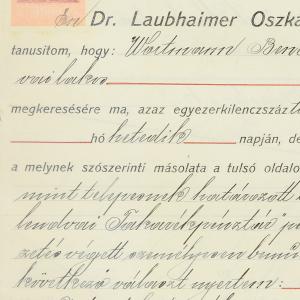 Én Dr. Laubhaimer Oszka
tanusítom, hogy: Wortmann Bene
vai lakos
megkeresésére ma, azaz egyezerkilenczszáz t
hó hetedik napján, de
a melynek szószerinti másolata a tulsó oldalo
mint telepesnek határozott
lendvai Takarékpénztár" p
zetés végett személyesen bemu
következő választ nyertem: